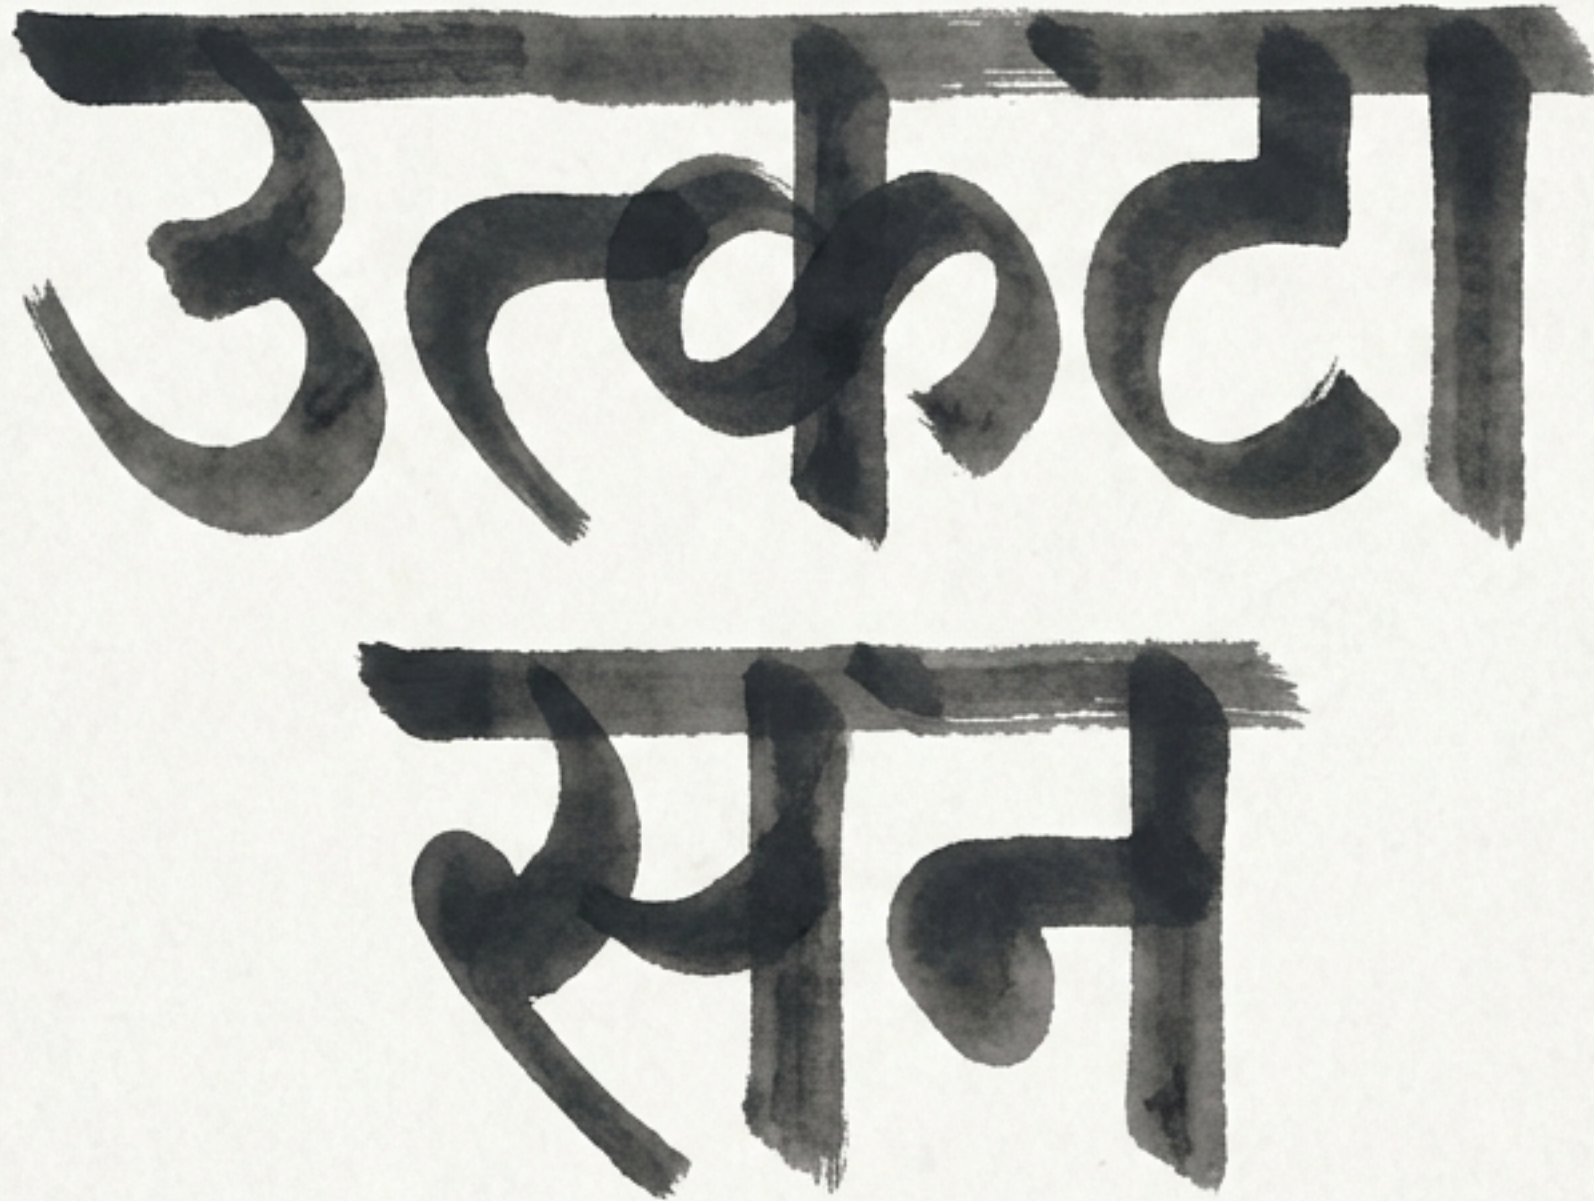 उत्कटा
सन